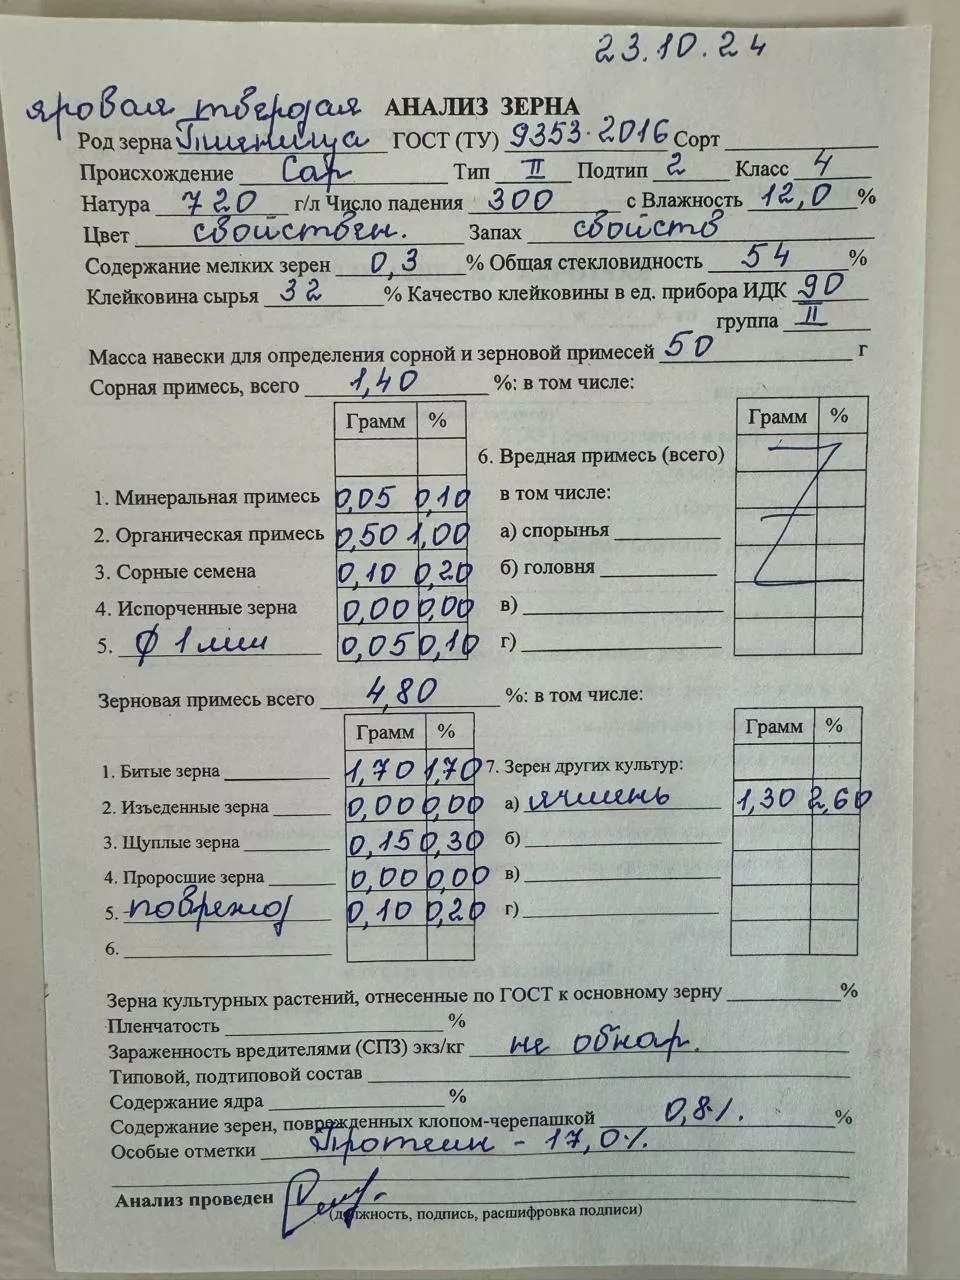 23.10.24
яровая твердая АНАЛИЗ ЗЕРНА
Род зерна Пшеница ГОСТ (ТУ) 9353-2016 Сорт
Происхождение Сар Тип II Подтип 2 Класс 4
Натура 720 г/л Число падения 300 с Влажность 12,0 %
Цвет свойствен. Запах свойств
Содержание мелких зерен 0,3 % Общая стекловидность 54 %
Клейковина сырья 32 % Качество клейковины в ед. прибора ИДК 90
группа II
Масса навески для определения сорной и зерновой примесей 50 г
Сорная примесь, всего 1,40 %: в том числе:
Грамм % Грамм %
6. Вредная примесь (всего)
1. Минеральная примесь 0,05 0,10 в том числе:
2. Органическая примесь 0,50 1,00 а) спорынья
3. Сорные семена 0,10 0,20 б) головня
4. Испорченные зерна 0,00 0,00 в)
5. ф 1 мм 0,05 0,10 г)
Зерновая примесь всего 4,80 %: в том числе:
Грамм % Грамм %
1. Битые зерна 1,70 1,70 7. Зерен других культур:
2. Изъеденные зерна 0,00 0,00 а) ячмень 1,30 2,60
3. Щуплые зерна 0,15 0,30 б)
4. Проросшие зерна 0,00 0,00 в)
5. поврежд 0,10 0,20 г)
6.
Зерна культурных растений, отнесенные по ГОСТ к основному зерну %
Пленчатость %
Зараженность вредителями (СПЗ) экз/кг не обнар.
Типовой, подтиповой состав
Содержание ядра %
Содержание зерен, поврежденных клопом-черепашкой 0,8%. %
Особые отметки Протеин - 17,0%.
Анализ проведен
(должность, подпись, расшифровка подписи)